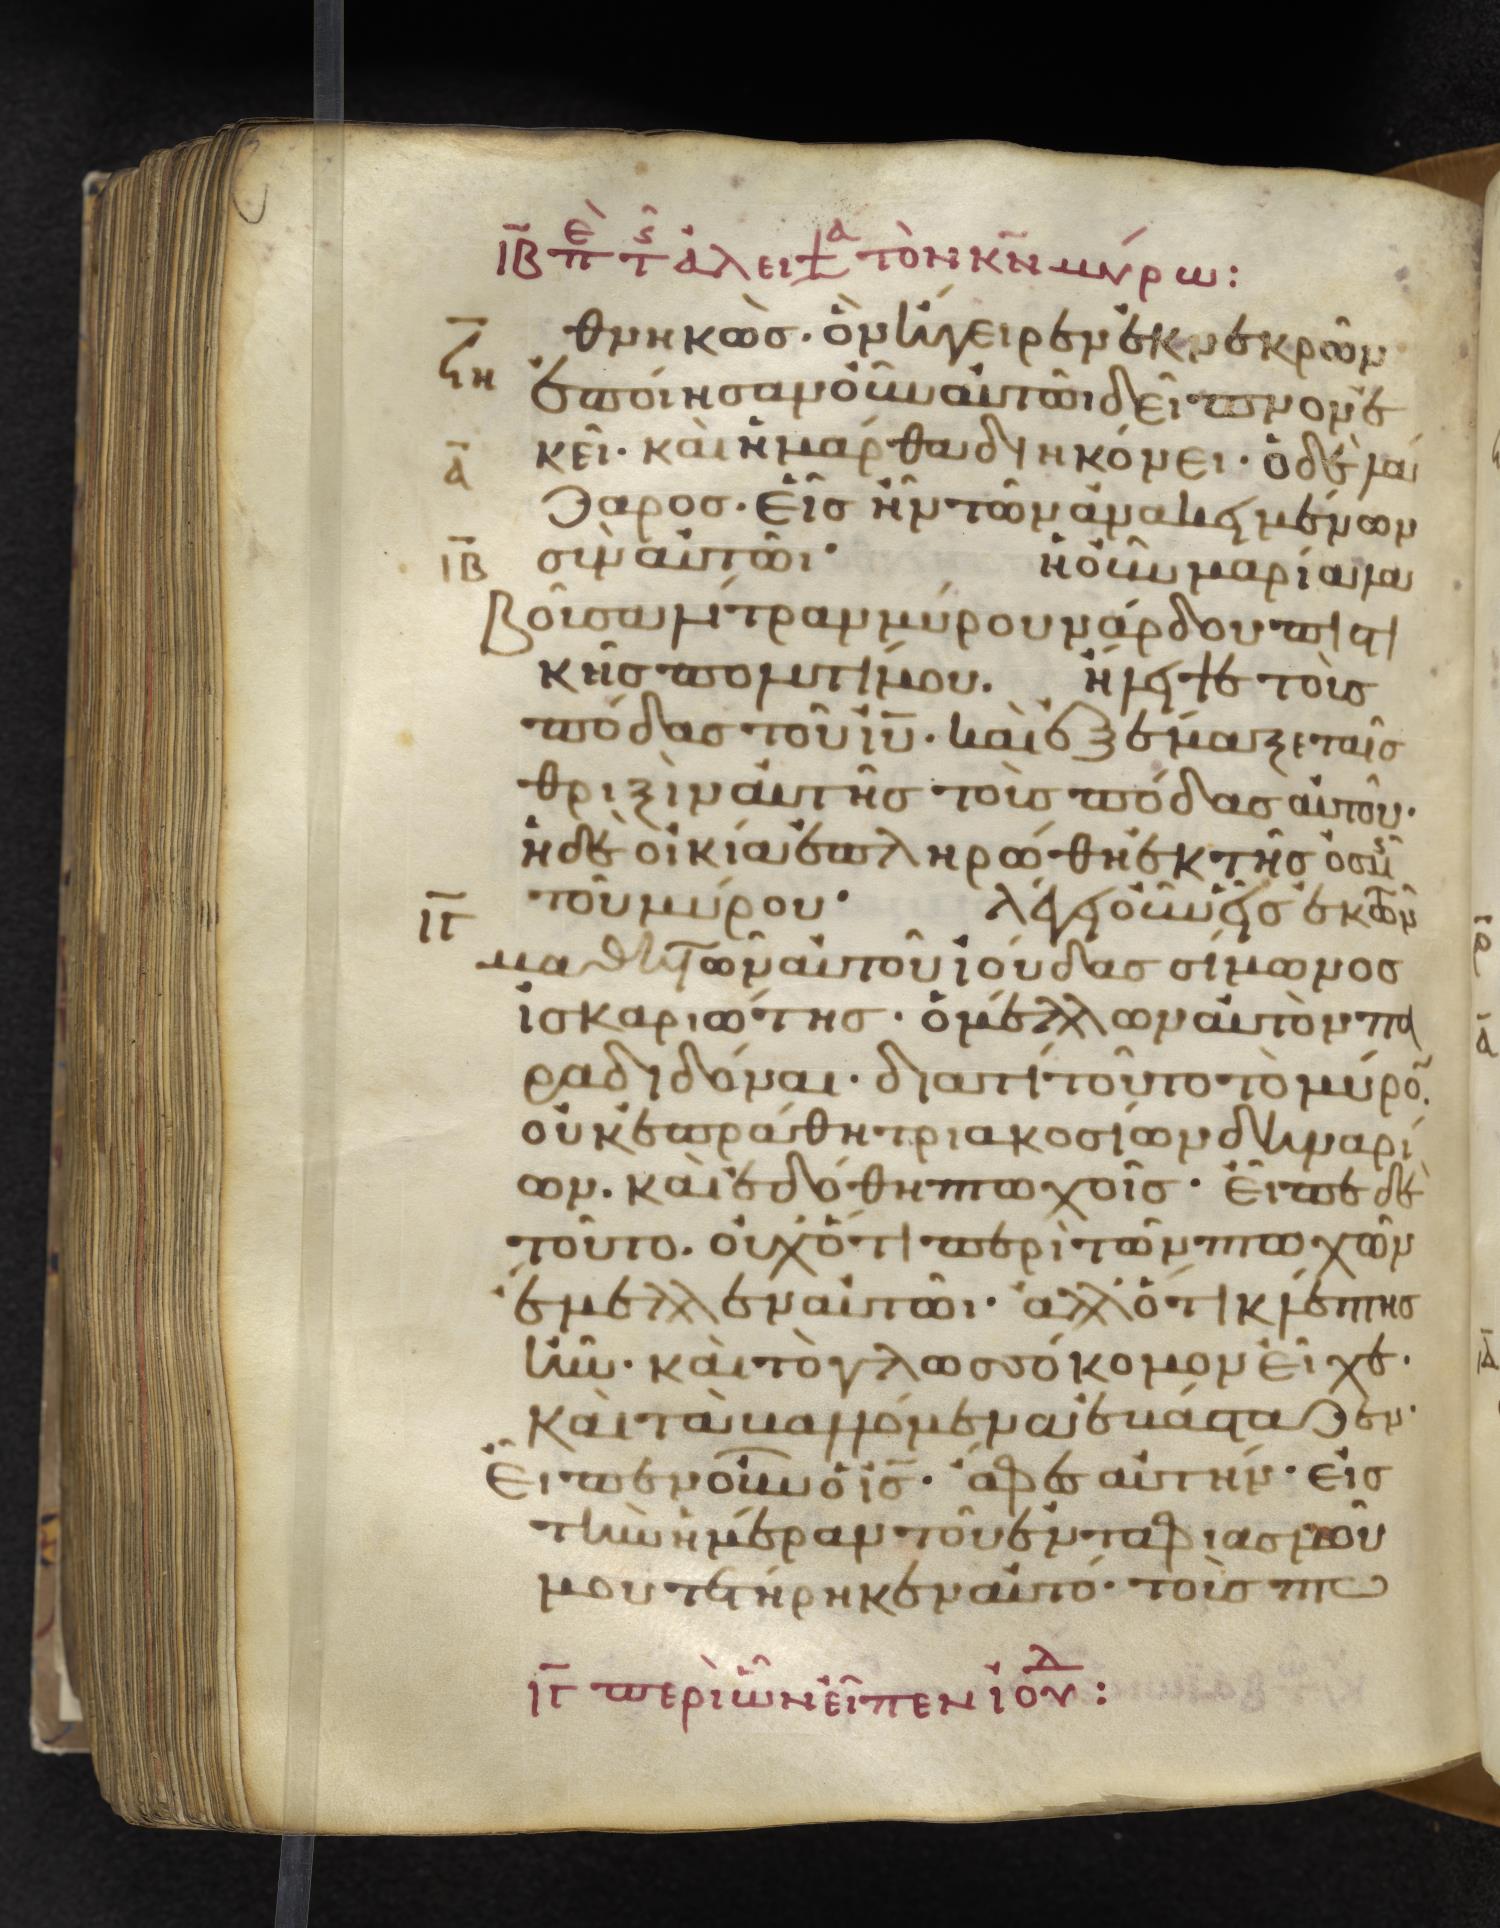 ιβ πε τς ἀλειψα τὸν κν μύρω:
θνηκὼσ· ὃν ἤγειρεν ἐκ νεκρῶν
ϟη
ἐποίησαν οὖν αὐτῶι δεῖπνον ἐ
κεῖ· καὶ ἡ μάρθα διηκόνει· ὁ δὲ λά
α
ζαροσ· εἷσ ἦν τῶν ἀνακειμένων
σὺν αὐτῶι· ἡ οὖν μαρία λα
ιβ
βοῦσα λίτραν μύρου νάρδου πιστι
κῆσ πολυτίμου. ἤλειψε τοὺσ
πόδασ τοῦ ιυ· καὶ ἐξέμαξε ταῖσ
θριξὶν αὐτῆσ τοὺσ πόδασ αὐτοῦ·
ἡ δὲ οἰκία ἐπληρώθη ἐκ τῆσ ὀσμῆς
τοῦ μύρου· λέγει οὖν εἷσ ἐκ τῶν
ιγ
μαθητῶν αὐτοῦ ἰούδασ σίμωνοσ
ἰσκαριώτησ· ὁ μέλλων αὐτὸν πα
ραδιδόναι· διατί τοῦτο τὸ μύρον
οὐκ ἐπράθη τριακοσίων δηναρί
ων. καὶ ἐδόθη πτωχοῖσ· εἶπε δὲ
τοῦτο. οὐχ ὅτι περὶ τῶν πτωχῶν
ἔμελλεν αὐτῶι· ἀλλ ὅτι κλέπτησ
ἦν· καὶ τὸ γλωσσόκομον εἶχε·
καὶ τὰ βαλλόμενα ἐβάσταζεν·
εἶπεν οὖν ὁ ισ· ἄφεσ αὐτήν· εἰσ
τὴν ἡμέραν τοῦ ἐνταφιασμοῦ
μου τετήρηκεν αὐτό· τοὺσ πτω
ιγ περὶ ὧν εἶπεν ἰούδ: